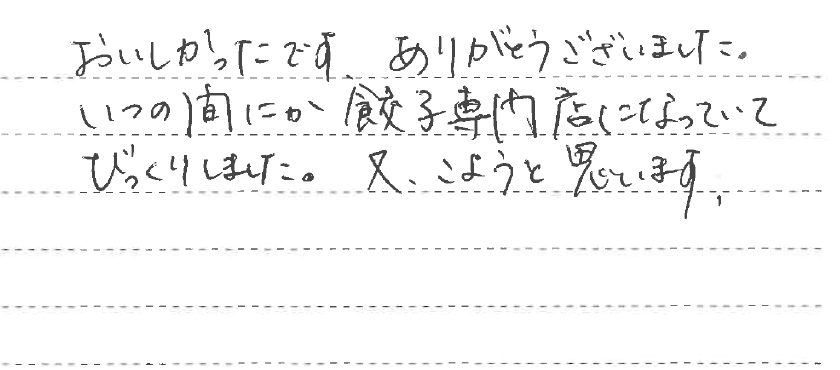 おいしかったです、ありがとうございました。
いつの間にか餃子専門店になっていて
びっくりしました。又、こようと思います。